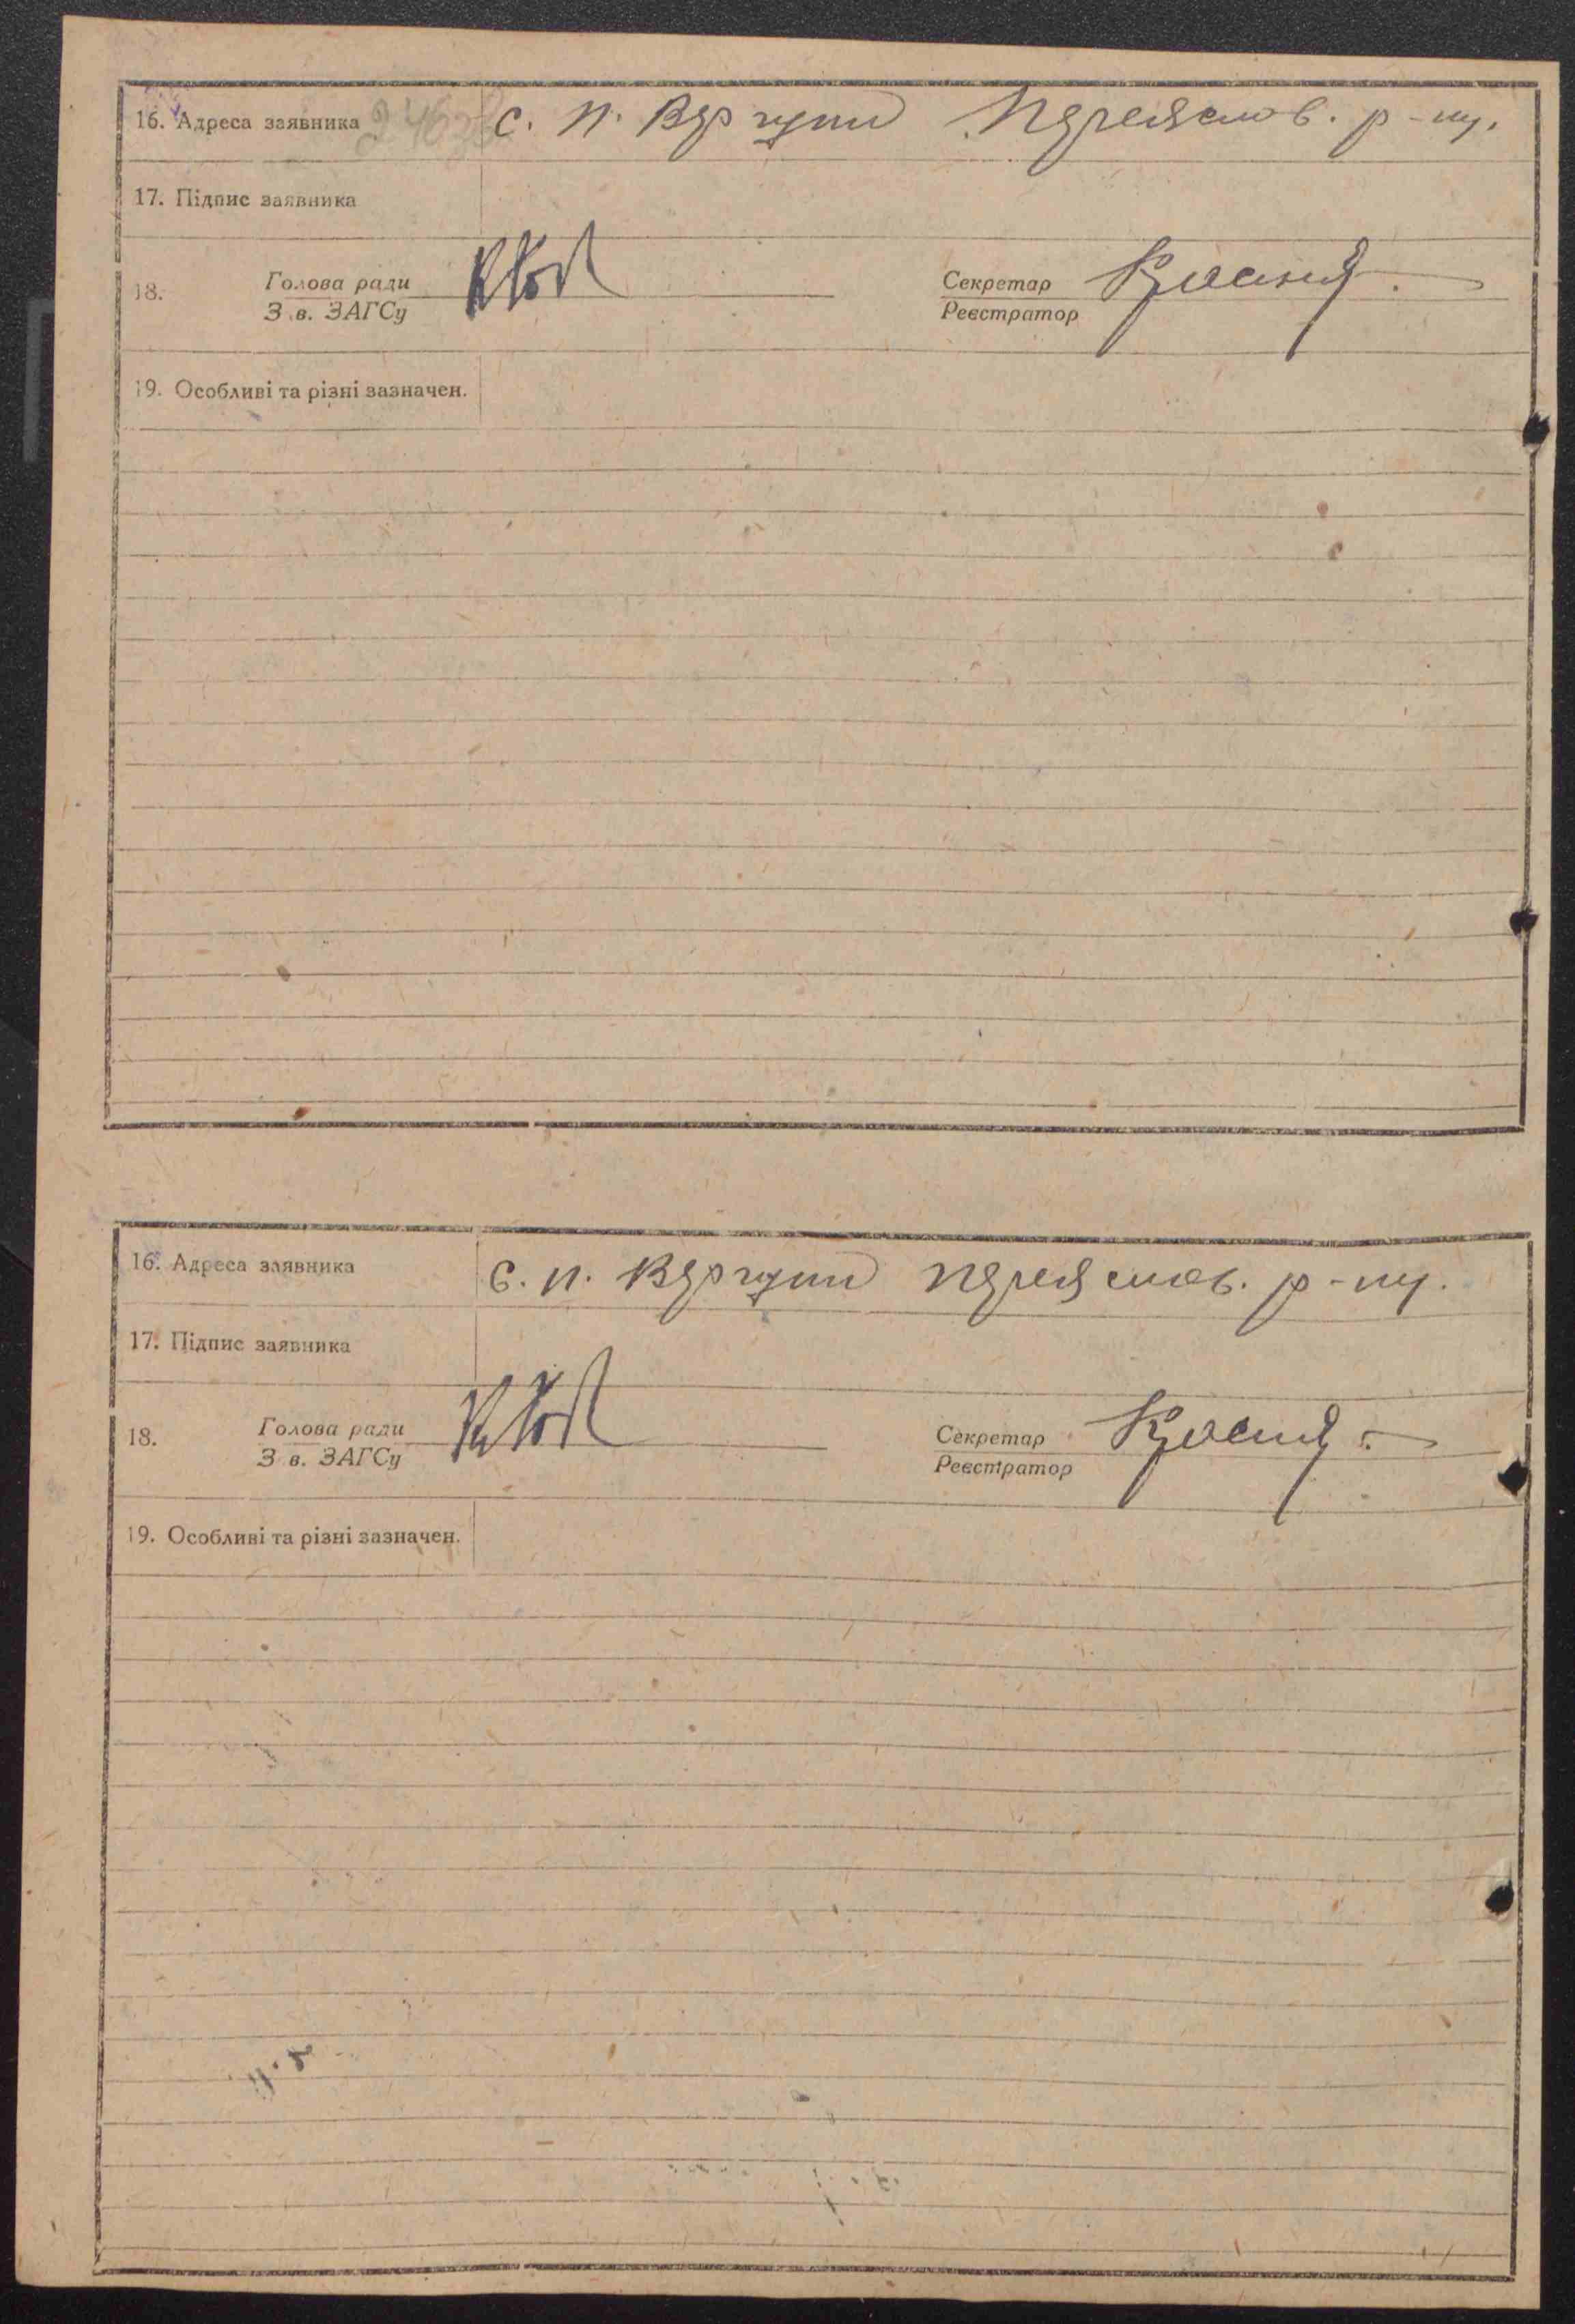 16. Адреса заявника с. п. Вергуни Переяслов. р-ну.
17. Підпис заявника
18. Голова ради Секретар
З в. ЗАГСу Реєстратор
19. Особливі та різні зазначен.
16. Адреса заявника с. п. Вергуни Переяслов. р-ну.
17. Підпис заявника
18. Голова ради Секретар
З в. ЗАГСу Реєстратор
19. Особливі та різні зазначен.